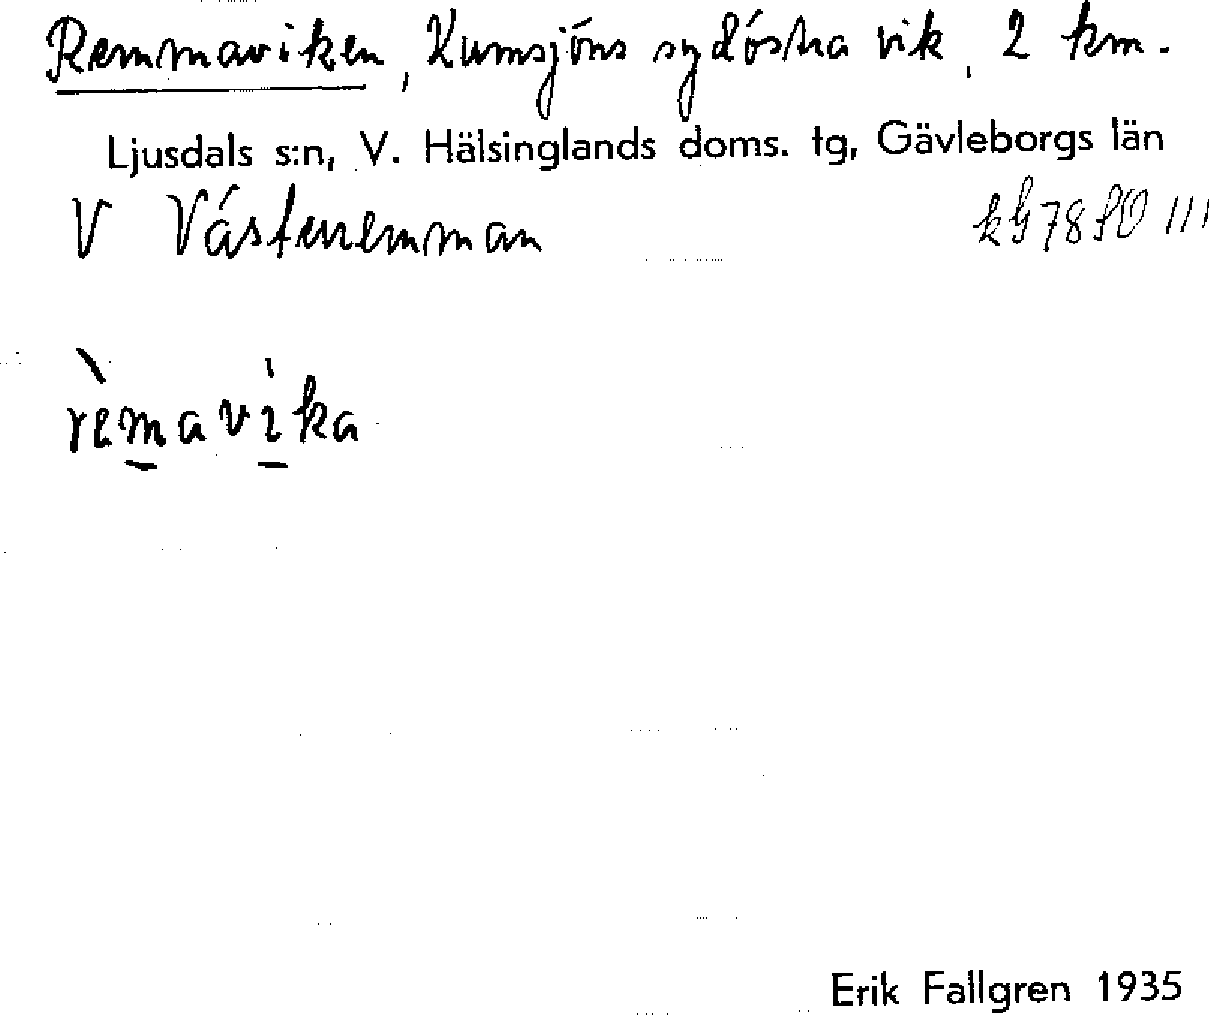 Remmaviken, Kumsjöns sydöstra vik, 2 km.
Ljusdals s:n, V. Hälsinglands doms. tg, Gävleborgs län
V Västerremman
rèmavìka
Erik Fallgren 1935